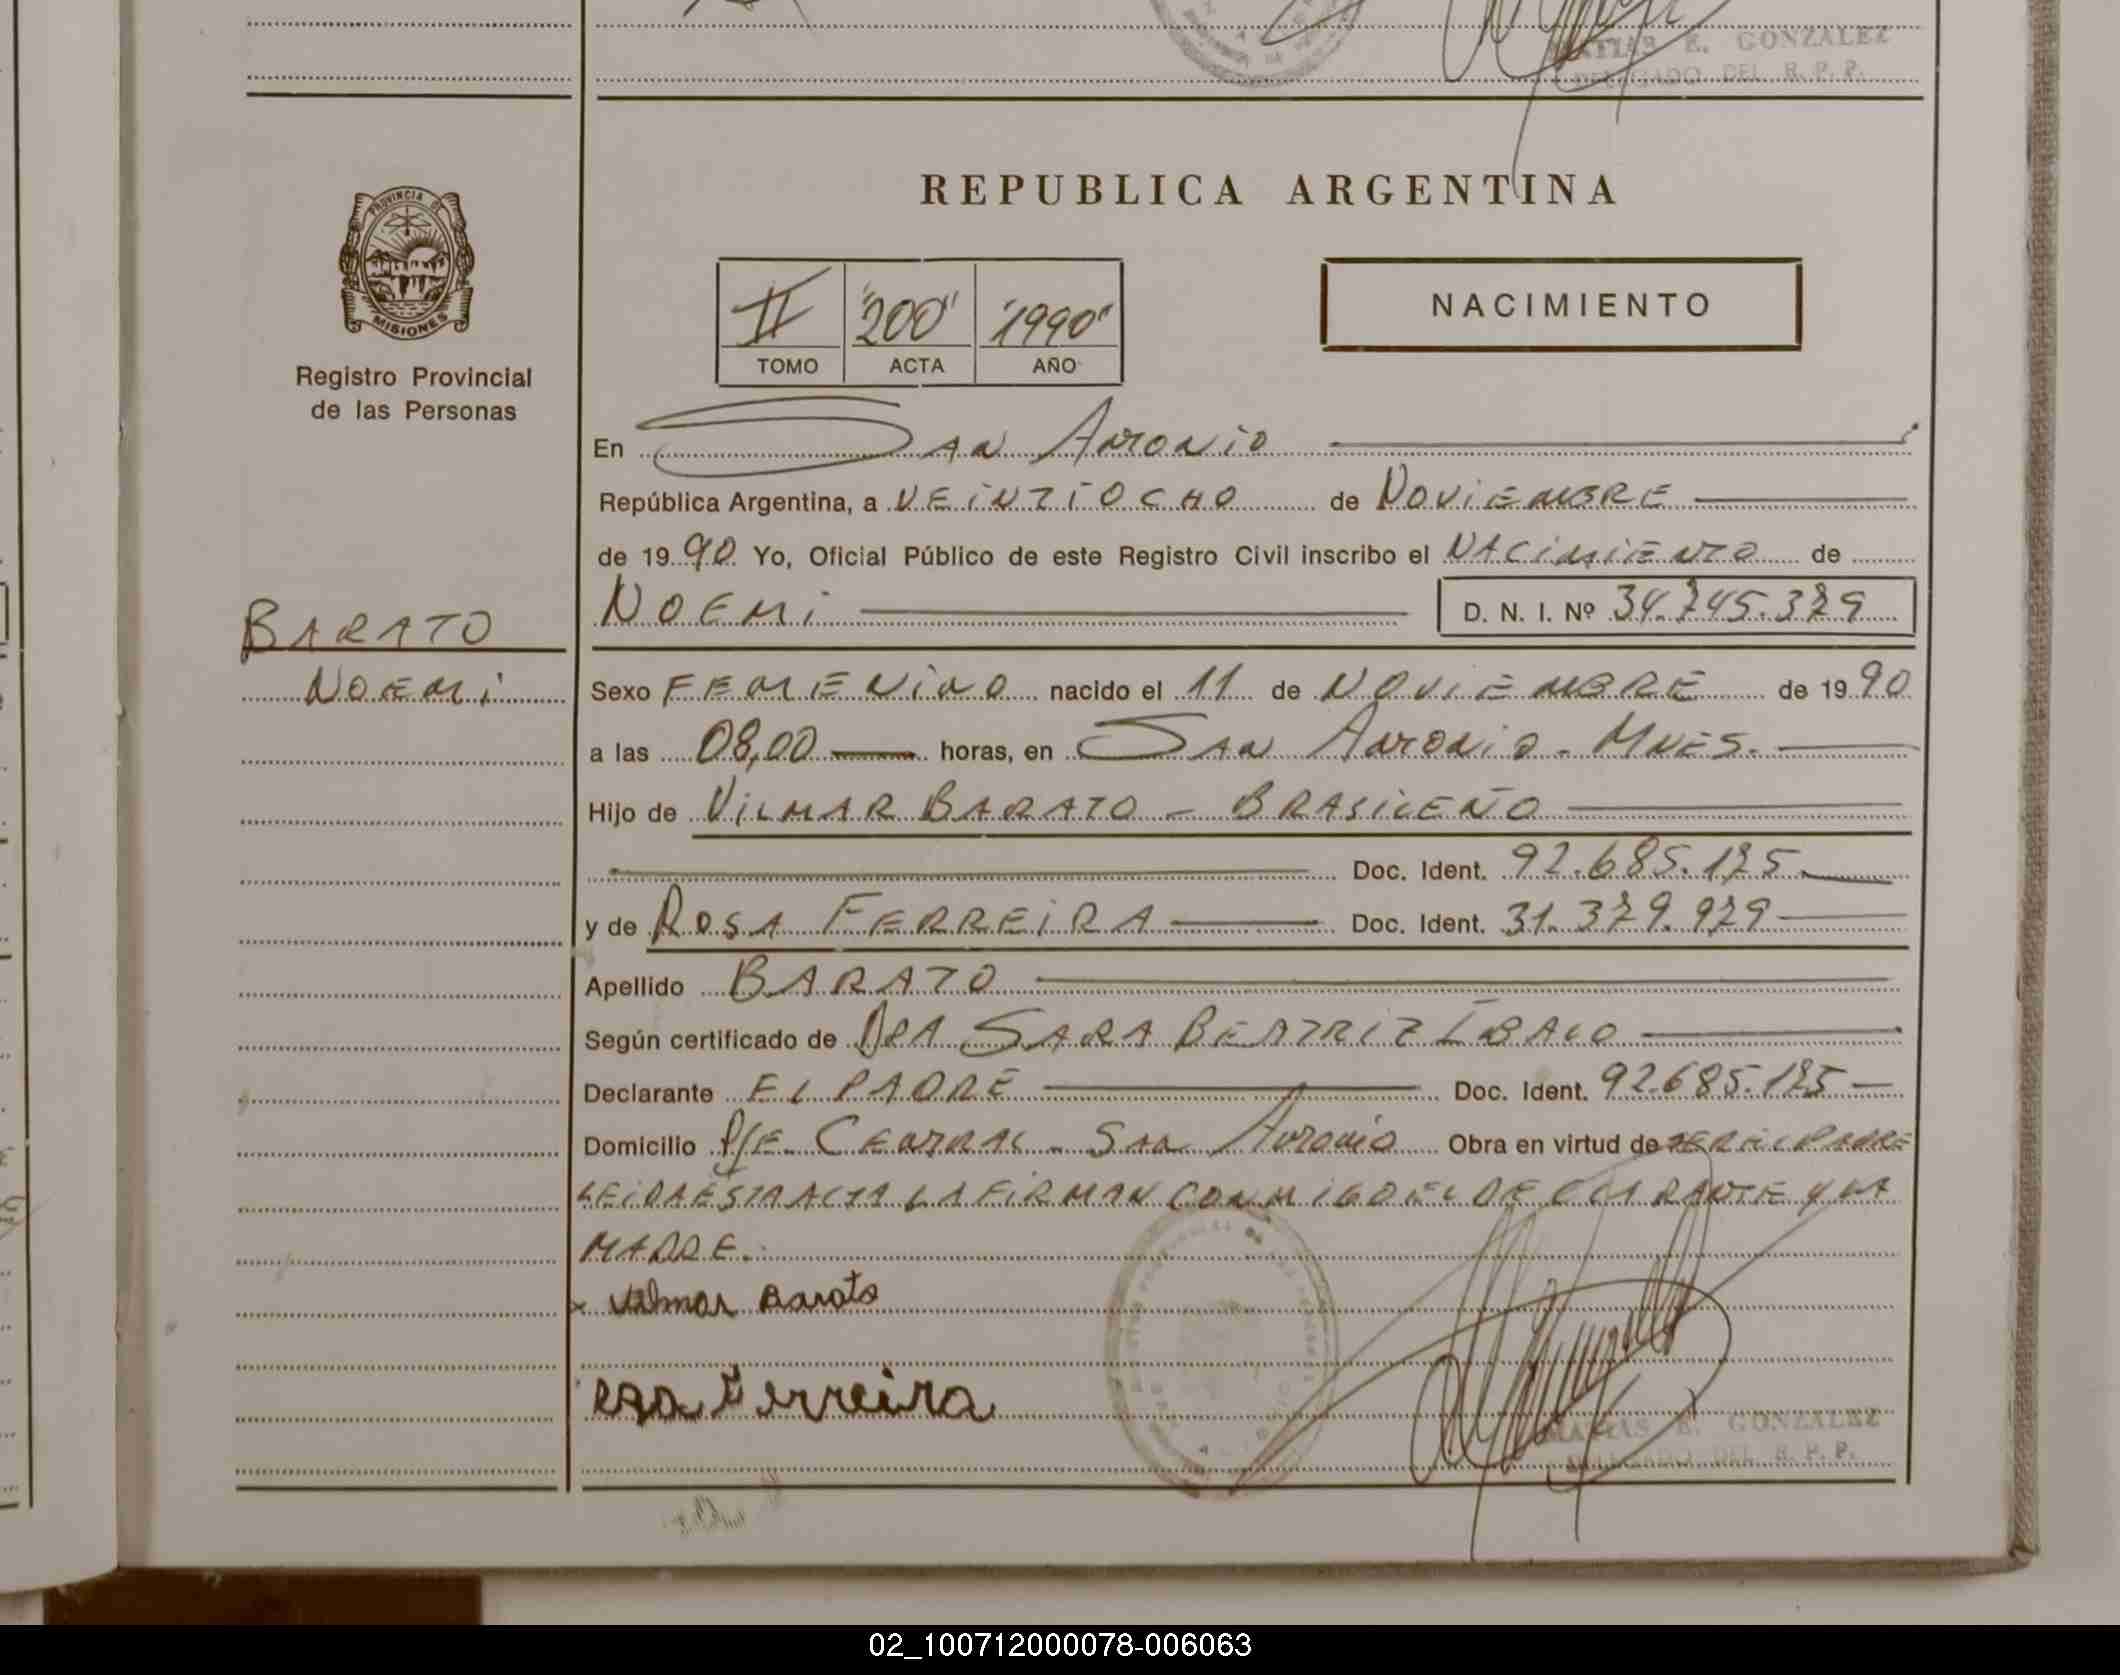 MATIAS E. GONZALEZ
DELEGADO DEL R. P. P.
PROVINCIA D
MISIONES
Registro Provincial
de las Personas
REPUBLICA ARGENTINA
II "200" "1990"
TOMO ACTA AÑO
NACIMIENTO
En SAN ANTONIO
República Argentina, a VEINTIOCHO de NOVIEMBRE
de 19 90 Yo, Oficial Público de este Registro Civil inscribo el NACIMIENTO de
NOEMI D. N. I. Nº 34.745.379
BARATO
NOEMI
Sexo FEMENINO nacido el 11 de NOVIEMBRE de 19 90
a las 08,00 horas, en SAN ANTONIO - MNES.
Hijo de VILMAR BARATO - BRASILEÑO
Doc. Ident. 92.685.175
y de ROSA FERREIRA Doc. Ident. 31.379.979
Apellido BARATO
Según certificado de DRA SARA BEATRIZ IBALO
Declarante EL PADRE Doc. Ident. 92.685.175
Domicilio PJE. CENTRAL - SAN ANTONIO Obra en virtud de SER EL PADRE
LEIDA ESTA ACTA LA FIRMAN CONMIGO EL DECLARANTE Y LA
MADRE.
x Vilmar Barato
Rosa Ferreira
MATIAS E. GONZALEZ
DELEGADO DEL R. P. P.
02_100712000078-006063